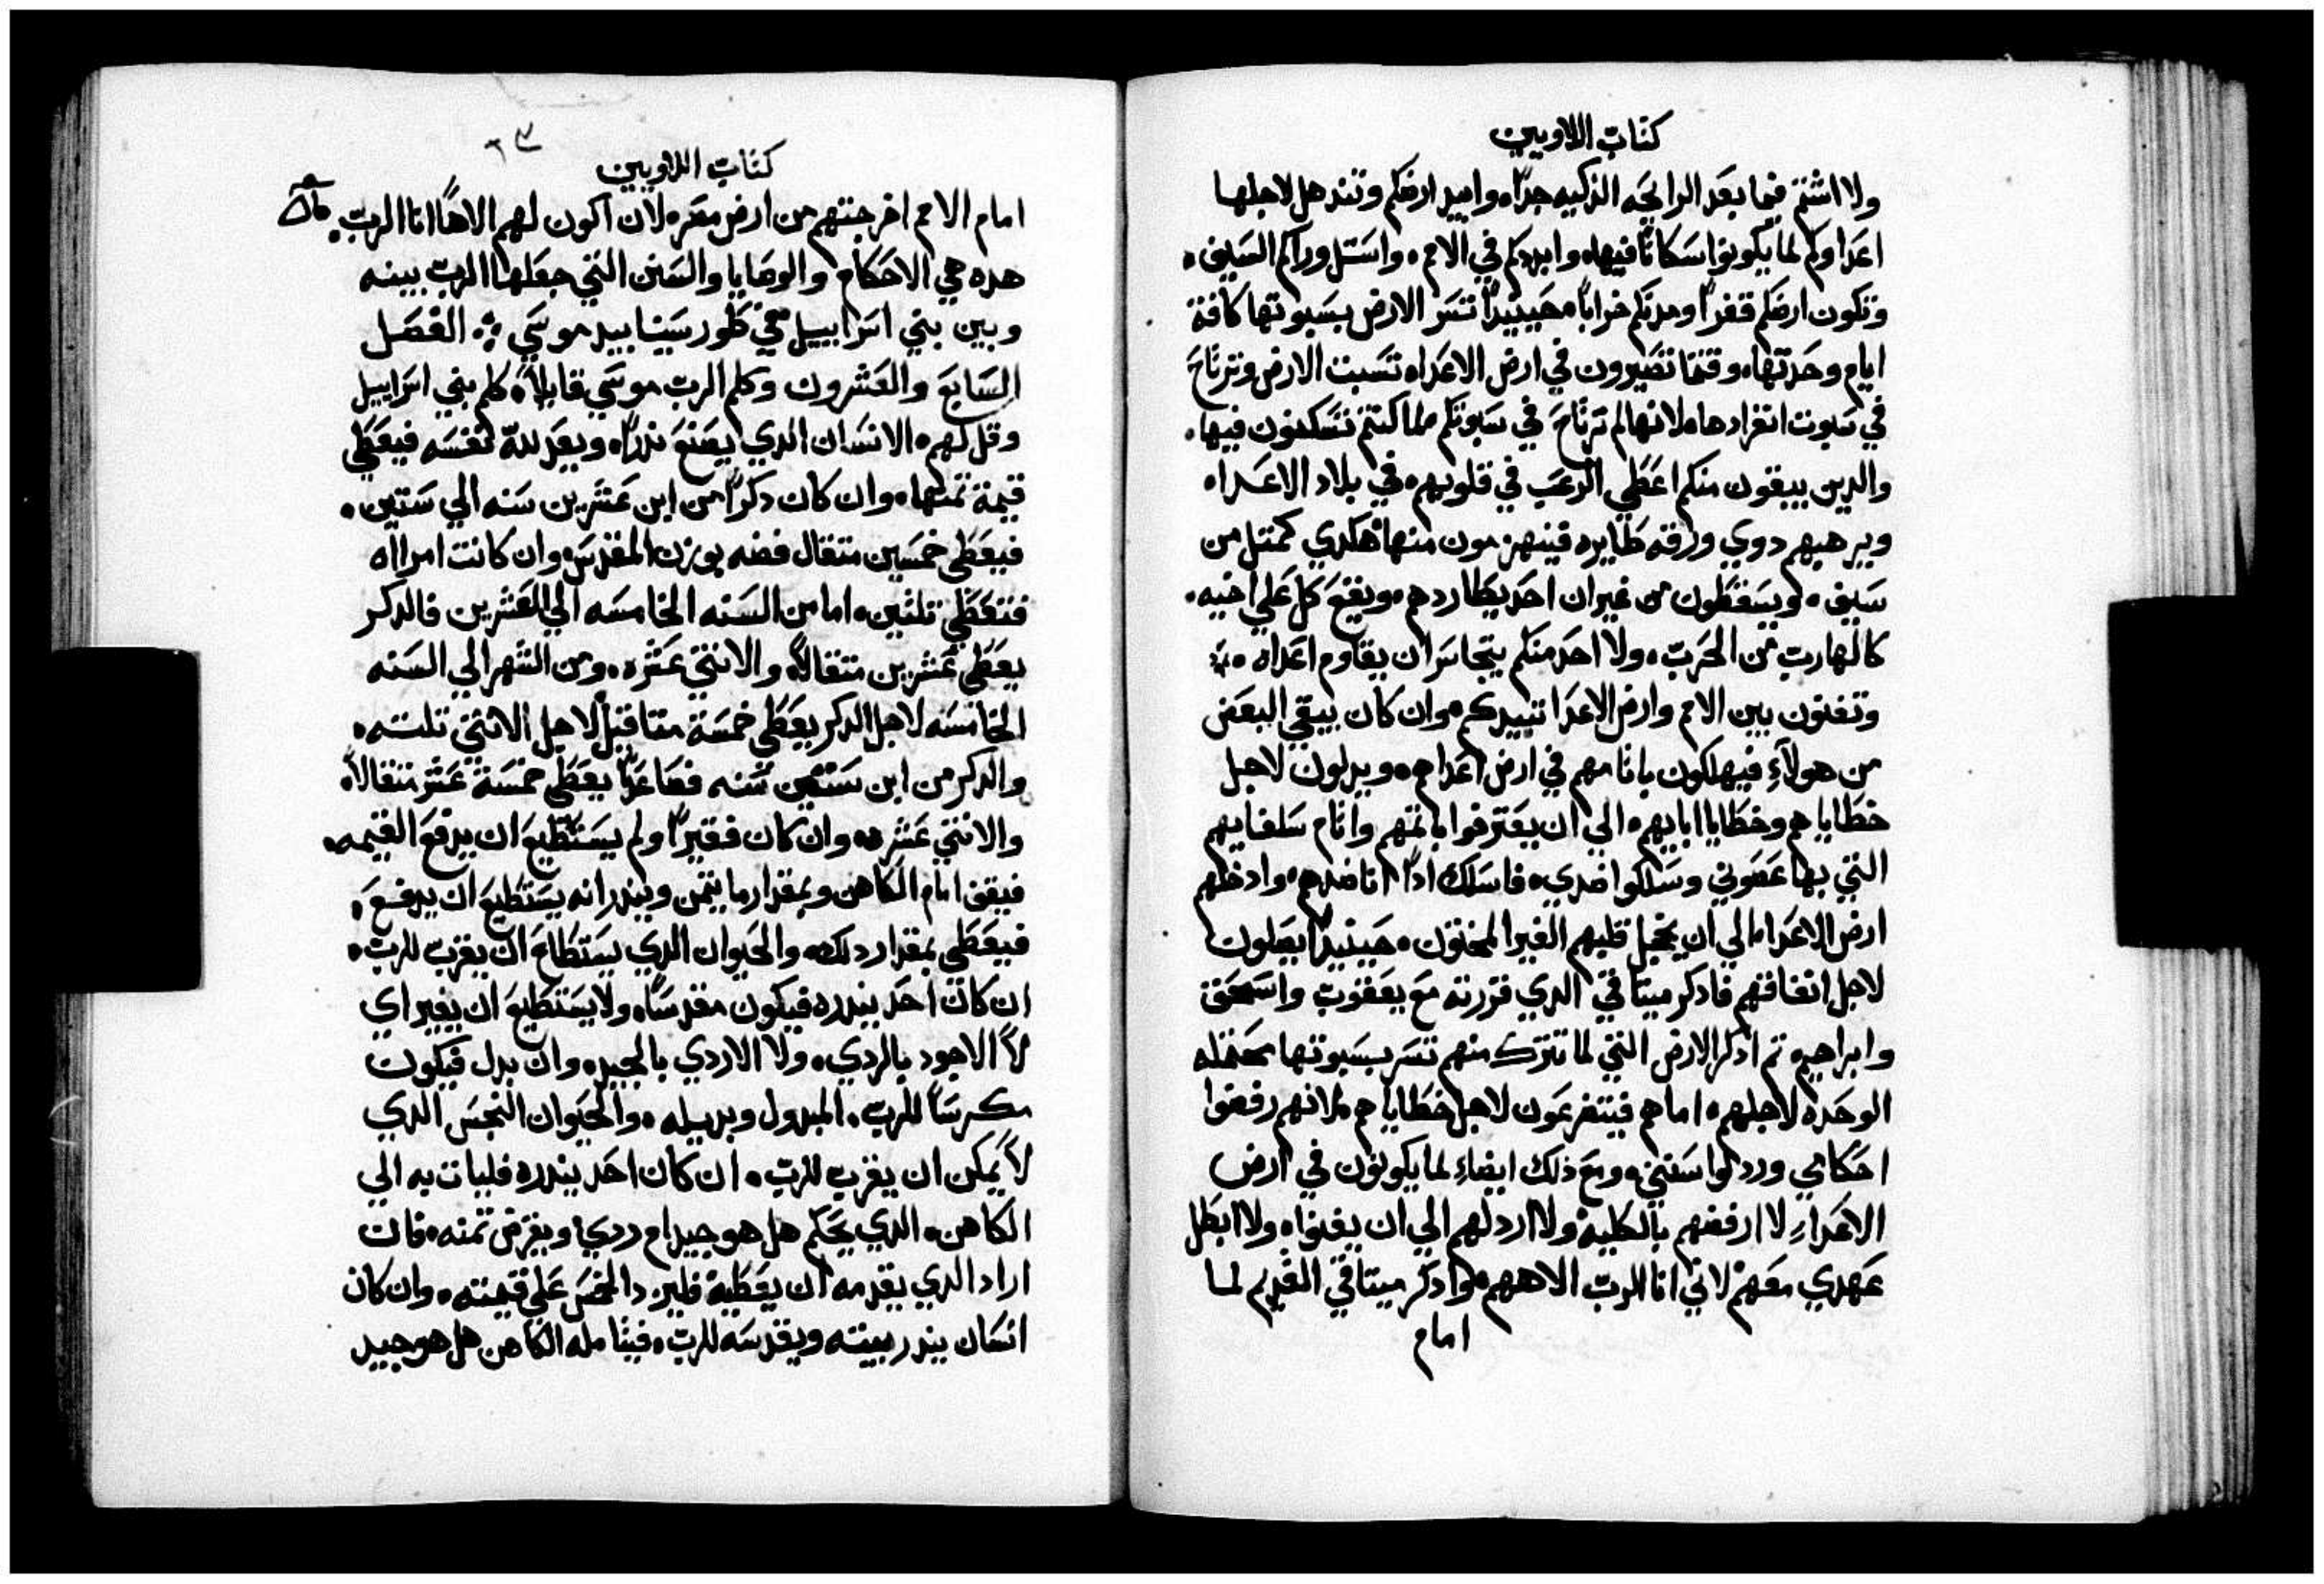 كتاب اللاويين
ولا اشتم فيما بعد الرايحه الذكيه جدا، وابيد ارضكم وتندهل لاجلها
اعداوكم لما يكونوا سكانا فيها، وابددكم في الامم، واستل وراكم السيف،
وتكون ارضكم قفرا ومدنكم خرابا، حينيدا تسر الارض بسبوتها كافة
ايام وحدتها، وقتما تصيرون في ارض الاعداء، تسبت الارض وترتاح
في سبوت انفرادها، لانها لم ترتاح في سبوتكم لما كنتم تسكنون فيها،
والدين يبقون منكم اعطي الرعب في قلوبهم، في بلاد الاعداء،
ويرهبهم دوي ورقه طايره، فينهزمون منها هكدي كمتل من
سيف، ويسقطون من غير ان احد يطاردهم، ويقع كل علي اخيه،
كالهارب من الحرب، ولا احد منكم يتجاسر ان يقاوم اعداه،
وتفنون بين الامم وارض الاعدا تبيدكم، وان كان يبقي البعض
من هولآءِ فيهلكون باثامهم في ارض اعداهم، ويدلون لاجل
خطاياهم وخطايا ابايهم، الي ان يعترفوا باثمهم واثام سلفايهم
التي بها عصوني وسلكوا ضدي، فاسلك ادا انا ضدهم، وادخلهم
ارض الاعداء، الي ان يخجل قلبهم الغير المختون، حينيدا يصلون
لاجل اتفاقهم، فادكر ميتاقي الدي قررته مع يعقوب واسحق
وابراهيم، تم ادكر الارض التي لما تترك منهم تسر بسبوتها محتمله
الوحده لاجلهم، اما هم فيتضرعون لاجل خطاياهم، لانهم رفضوا
احكامي وردلوا سنني، ومع ذلك ايضاءِ لما يكونون في ارض
الاعداءِ لا ارفضهم بالكلية، ولا اردلهم الي ان يفنوا، ولا ابطل
عهدي معهم، لاني انا الرب الاههم، وادكر ميتاقي القديم لما
امام
٦٣
كتاب اللاويين
امام الامم اخرجتهم من ارض مصر، لان اكون لهم الاها، انا الرب.
هده هي الاحكام والوصايا والسنن التي جعلها الرب بينه
وبين بني اسراييل في طور سينا بيد موسي ∴ الفصل
السابع والعشرون وكلم الرب موسي قايلا، كلم بني اسراييل
وقل لهم، الانسان الدي يصنع ندرا، ويعد لله نفسه فيعطي
قيمة تمنها، وان كان دكرا من ابن عشرين سنه الي ستين،
فيعطي خمسين متقال فضه بوزن المقدس، وان كانت امراه
فتعطي تلثين، اما من السنه الخامسه الي العشرين فالدكر
يعطي عشرين متقالا، والانتي عشره، ومن الشهر الي السنه
الخامسه لاجل الدكر يعطي خمسة متاقيل، لاجل الانتي تلته،
والدكر من ابن ستين سنه فصاعدا يعطي خمسة عشر متقالا،
والانتي عشره، وان كان فقيرا ولم يستطيع ان يدفع القيمه،
فيقف امام الكاهن وبمقدار ما يتمن ويندر انه يستطيع ان يدفع،
فيعطي بمقدار دلك، والحيوان الدي يستطاع ان يقرب للرب،
ان كان احد يندره فيكون مقدسا، ولا يستطيع ان يغير اي
لا الاجود بالردي، ولا الاردي بالجيد، وان بدل فيكون
مكرسا للرب، المبدول وبديله، والحيوان النجس الدي
لا يمكن ان يقرب للرب، ان كان احد يندره فليات به الي
الكاهن، الدي يحكم هل هو جيد ام ردي، ويفرض تمنه، فان
اراد الدي يقدمه ان يعطيه فليزد الخمس علي قيمته، وان كان
انسان يندر بيته ويقدسه للرب، فيتامله الكاهن هل هو جيد